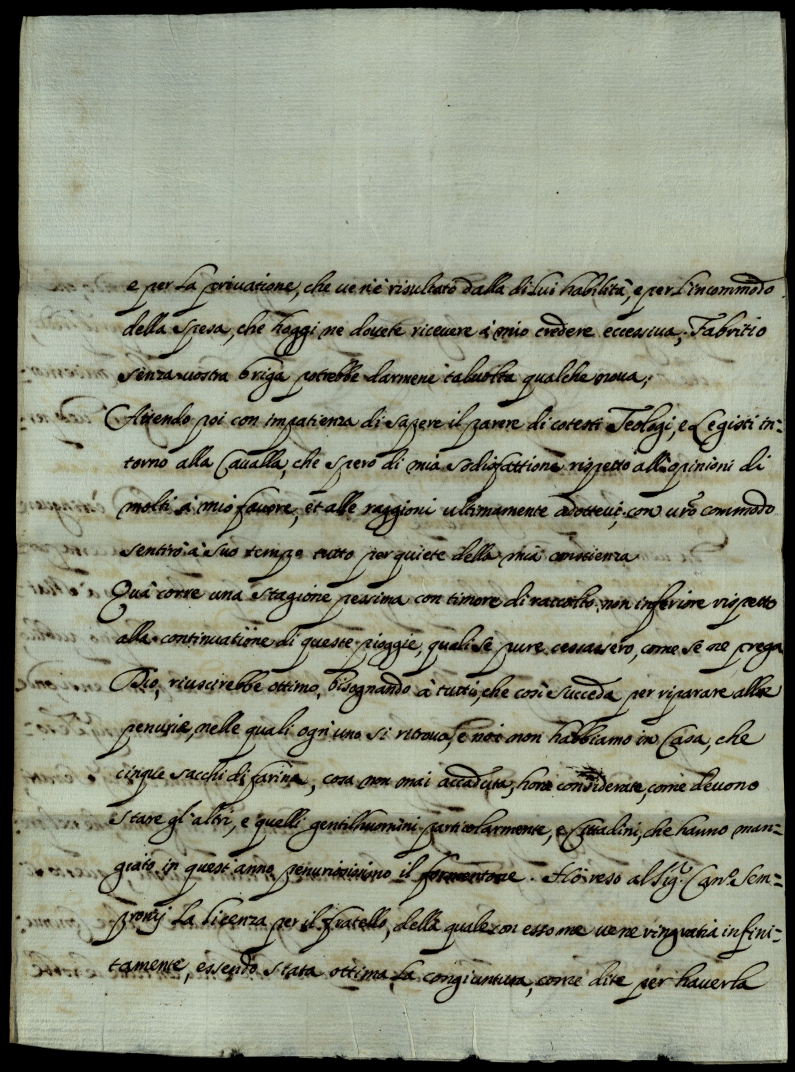 e per La privatione, che ve n'è risultato dalla di lui habilità, e per L'incommodo
della spesa, che hoggi ne dovete ricevere à mio credere eccessiva; Fabritio
senza vostra briga potrebbe darmene talvolta qualche nova;
Attendo poi con impatienza di sapere il parere di cotesti Teologi, e Legisti in=
torno alla Cavalla, che spero di mia sodisfattione rispetto all'opinioni di
molti à mio favore, et alle raggioni ultimamente adottevi; con vr̃o commodo
sentirò à suo tempo tutto per quiete della mia conscienza
Quà corre una stagione pessima con timore di raccolto non inferiore rispetto
alla continuatione di queste pioggie, quali se pure cessassero, come se ne prega
Dio, riuscirebbe ottimo, bisognando à tutti, che così succeda per riparare alle
penurie, nelle quali ogn'uno si ritrova, e noi non habbiamo in Casa, che
cinque sacchi di farina, cosa non mai accaduta, hora considerate, come devono
stare gl'altri, e quelli gentilhuomini particolarmente, e Cittadini, che hanno man=
giato in quest'anno penuriosissimo il formentone. Hò reso al Sig.r Can.o Sem=
pronij La licenza per il fratello, della quale con esso me ve ne ringratia infini=
tamente, essendo stata ottima La congiuntura, come dite per haverla